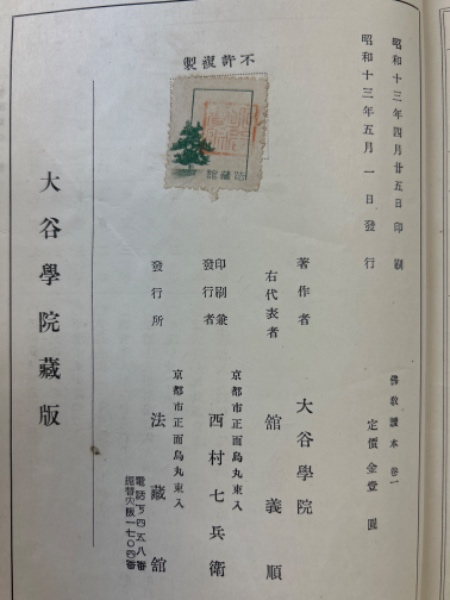 昭和十三年四月廿五日印刷
昭和十三年五月一日發行
佛敎讀本 卷一
定價金壹圓
不許複製
法藏館
著作者 大谷學院
右代表者 舘義順
京都市正面烏丸東入
印刷兼發行者 西村七兵衛
京都市正面烏丸東入
發行所 法藏舘
電話下四五八番
振替大阪一七〇四番
大谷學院藏版